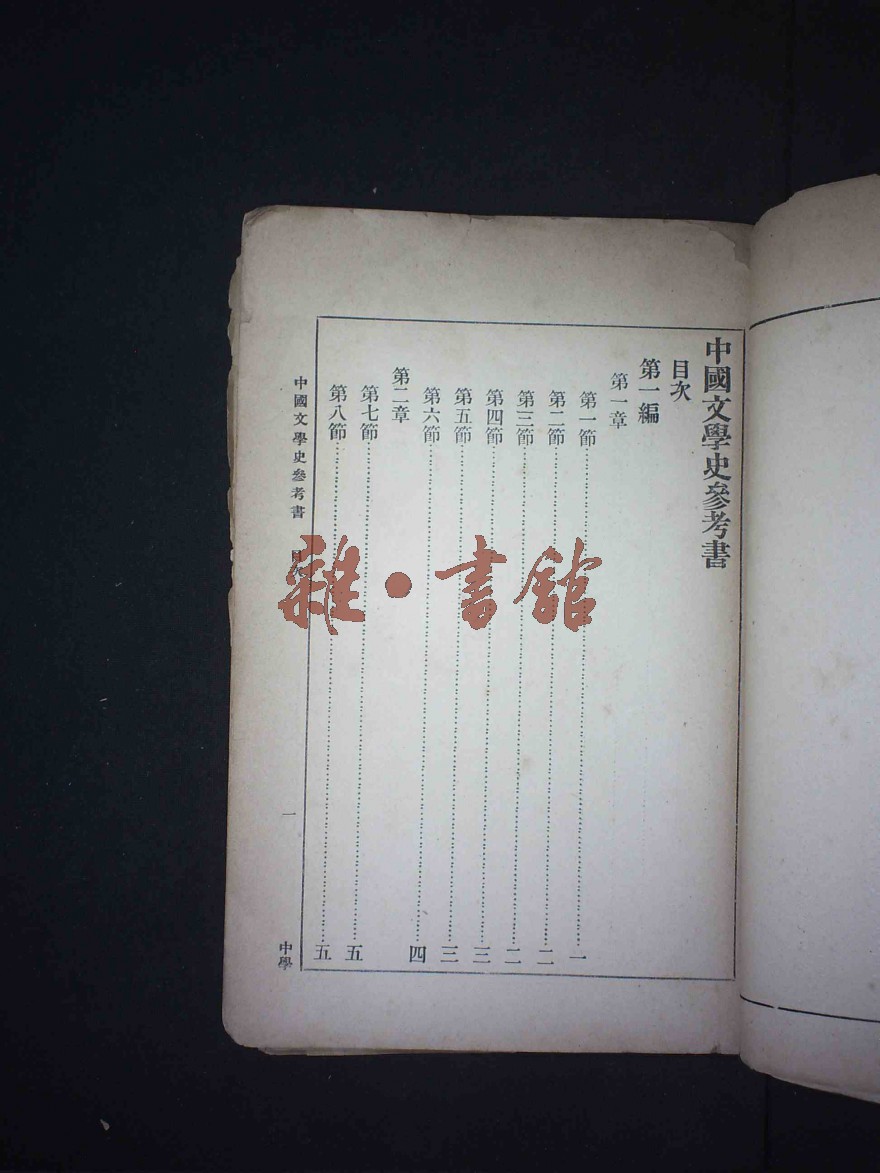 中國文學史參考書
目次
第一編
第一章
第一節……一
第二節……二
第三節……二
第四節……三
第五節……三
第六節……四
第二章
第七節……五
第八節……五
中國文學史參考書 目次 一 中學
雜·書館